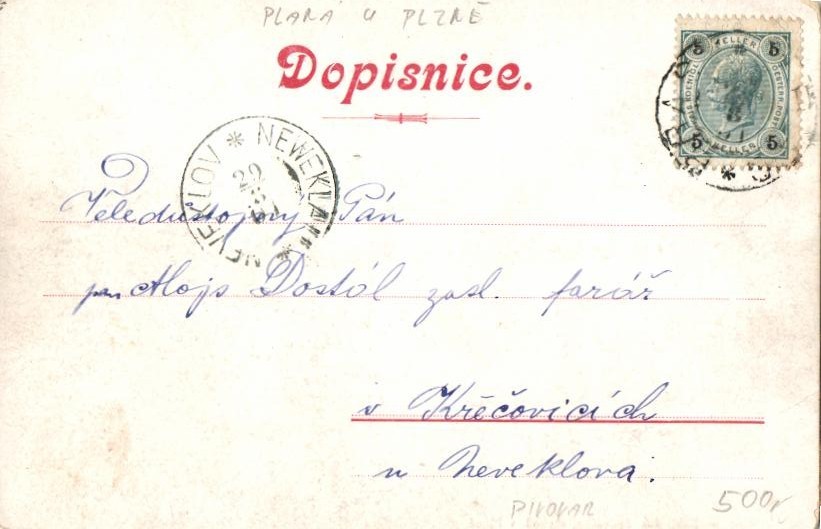 PLANÁ U PLZNĚ
Dopisnice.
5 HELLER 5
5 HELLER 5
NEVEKLOV * NEWEKLAU *
Veledůstojný Pán
pan Alojs Dostál zasl. farář
v Křěčovicích
u Neveklova.
PIVOVAR
500,